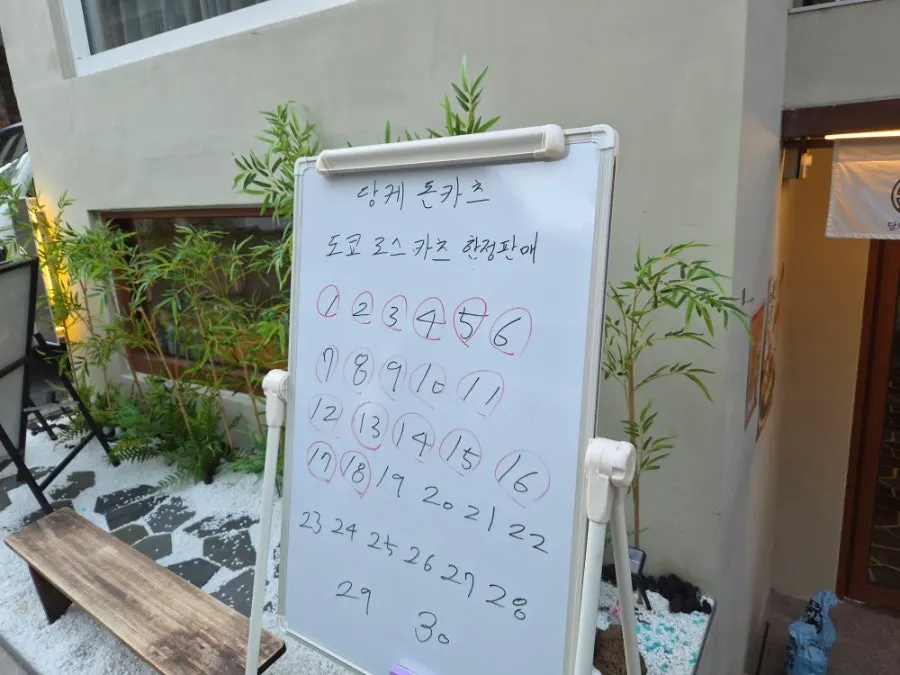 당케 돈카츠
도쿄 로스 카츠 한정판매
1 2 3 4 5 6
7 8 9 10 11
12 13 14 15 16
17 18 19 20 21 22
23 24 25 26 27 28
29 30